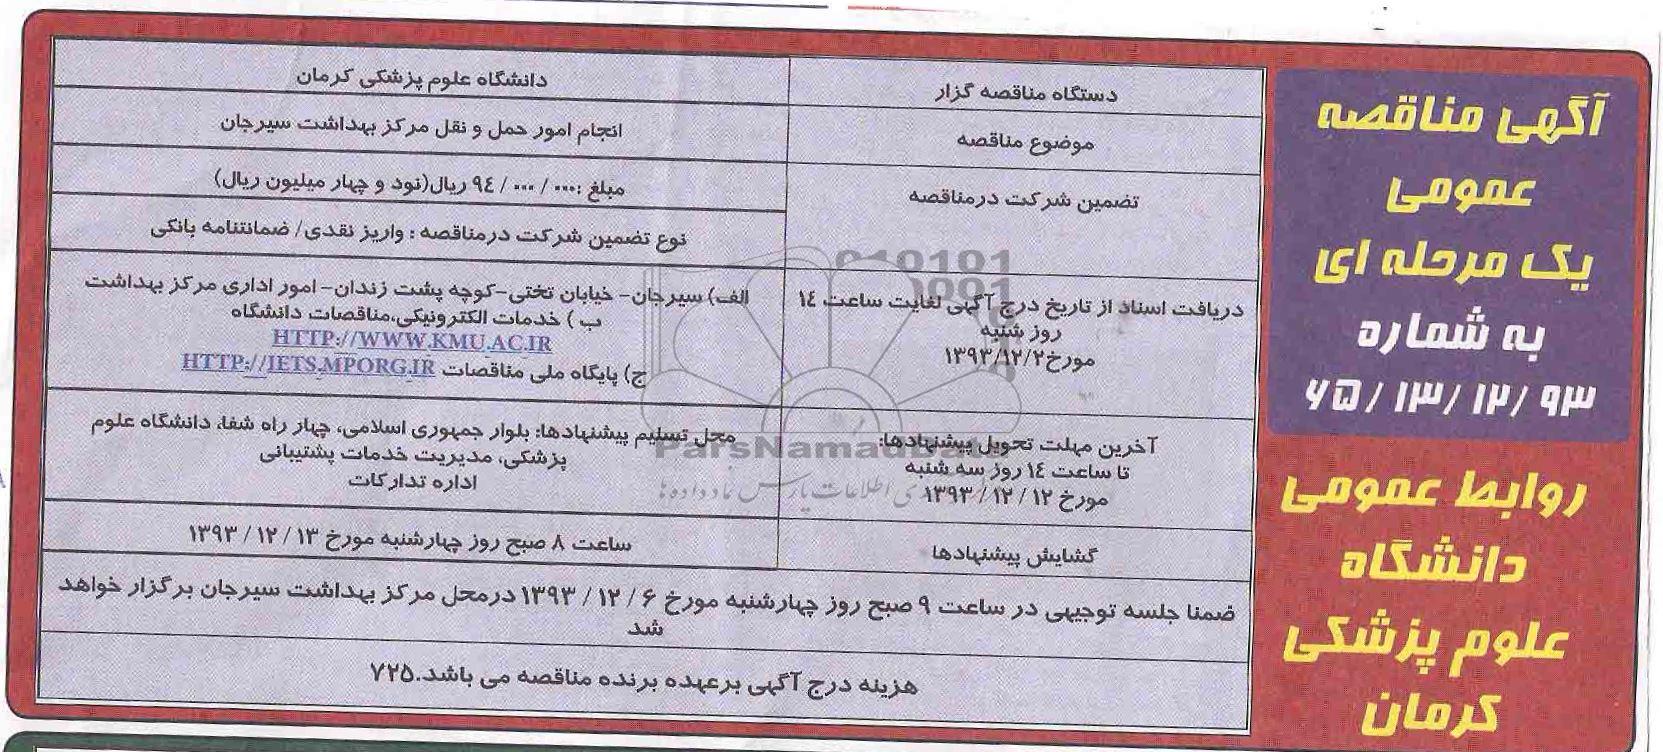 آگهی مناقصه
عمومی
یک مرحله ای
به شماره
۶۵/۱۳/۱۲/۹۳
روابط عمومی
دانشگاه
علوم پزشکی
کرمان
دستگاه مناقصه گزار
دانشگاه علوم پزشکی کرمان
موضوع مناقصه
انجام امور حمل و نقل مرکز بهداشت سیرجان
تضمین شرکت درمناقصه
مبلغ :۰۰۰ / ۰۰۰ / ۹٤ ریال(نود و چهار میلیون ریال)
نوع تضمین شرکت درمناقصه : واریز نقدی/ ضمانتنامه بانکی
دریافت اسناد از تاریخ درج آگهی لغایت ساعت ۱٤
روز شنبه
مورخ۱۳۹۳/۱۲/۲
الف) سیرجان- خیابان تختی-کوچه پشت زندان- امور اداری مرکز بهداشت
ب ) خدمات الکترونیکی،مناقصات دانشگاه
HTTP://WWW.KMU.AC.IR
ج) پایگاه ملی مناقصات HTTP://IETS.MPORG.IR
آخرین مهلت تحویل پیشنهادها:
تا ساعت ۱٤ روز سه شنبه
مورخ ۱۲ / ۱۲ / ۱۳۹۳
محل تسلیم پیشنهادها: بلوار جمهوری اسلامی، چهار راه شفا، دانشگاه علوم
پزشکی، مدیریت خدمات پشتیبانی
اداره تدارکات
گشایش پیشنهادها
ساعت ۸ صبح روز چهارشنبه مورخ ۱۳ / ۱۲ / ۱۳۹۳
ضمنا جلسه توجیهی در ساعت ۹ صبح روز چهارشنبه مورخ ۶ / ۱۲ / ۱۳۹۳ درمحل مرکز بهداشت سیرجان برگزار خواهد
شد
هزینه درج آگهی برعهده برنده مناقصه می باشد.۷۲۵
ParsNamadData